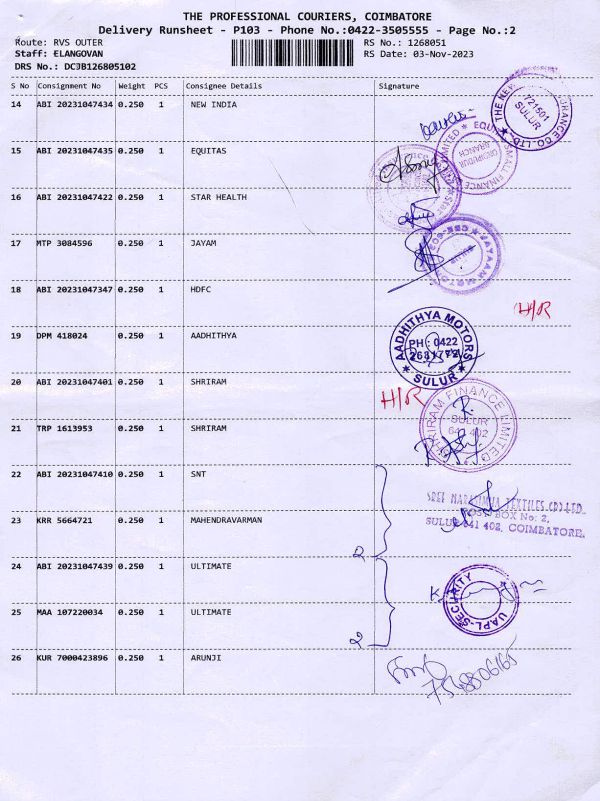 THE PROFESSIONAL COURIERS, COIMBATORE
Delivery Runsheet - P103 - Phone No.:0422-3505555 - Page No.:2
Route: RVS OUTER
RS No.: 1268051
Staff: ELANGOVAN
RS Date: 03-Nov-2023
DRS No.: DCJB126805102
S No Consignment No Weight PCS Consignee Details Signature
14 ABI 20231047434 0.250 1 NEW INDIA
721501
SULUR
15 ABI 20231047435 0.250 1 EQUITAS
16 ABI 20231047422 0.250 1 STAR HEALTH
17 MTP 3084596 0.250 1 JAYAM
18 ABI 20231047347 0.250 1 HDFC
H/R
19 DPM 418024 0.250 1 AADHITHYA
AADHITHYA MOTORS
PH : 0422
SULUR
20 ABI 20231047401 0.250 1 SHRIRAM
H/R
SHRIRAM FINANCE LIMITED
SULUR
641 402
21 TRP 1613953 0.250 1 SHRIRAM
22 ABI 20231047410 0.250 1 SNT
23 KRR 5664721 0.250 1 MAHENDRAVARMAN
POST BOX No: 2,
SULUR 641 402, COIMBATORE.
2
24 ABI 20231047439 0.250 1 ULTIMATE
UAPL-SECURITY
25 MAA 107220034 0.250 1 ULTIMATE
2
26 KUR 7000423896 0.250 1 ARUNJI